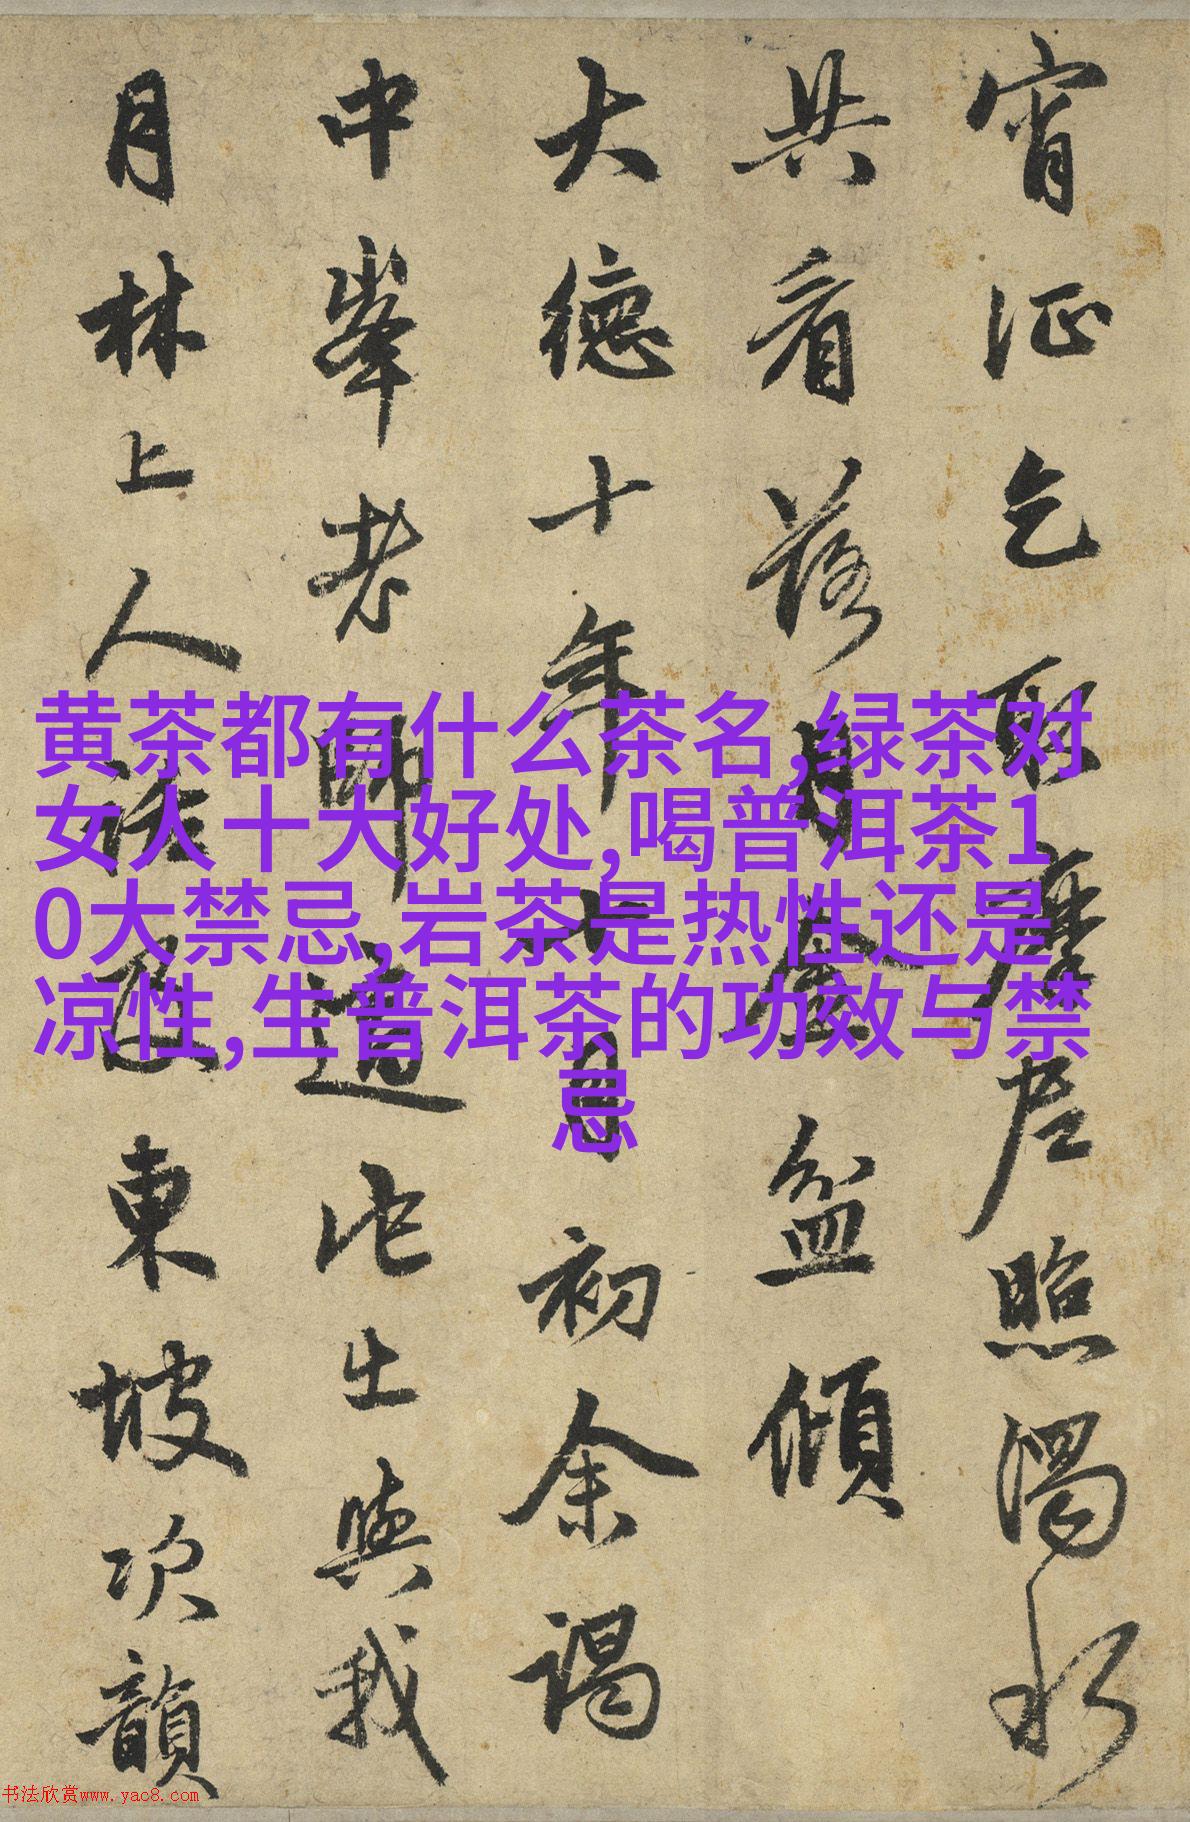 宵征乞取摩尼照濁水
共看落月金盆傾
大德十年八月初余謁
中峯老師道出與我
月林上人及東坡次韻
黄茶都有什么茶名,绿茶对
女人十大好处,喝普洱茶1
0大禁忌,岩茶是热性还是
凉性,生普洱茶的功效与禁
忌
书法欣赏www.yac8.com